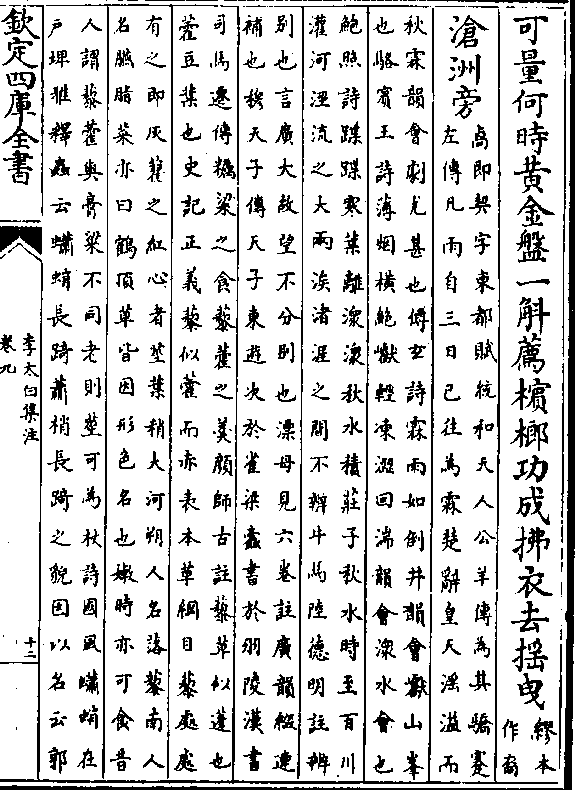 可量何時黃金盤一斛薦檳榔功成拂衣去揺曳繆本作裔
滄洲旁卨即契字東都賦統和天人公羊傳為其驕蹇
左傳凡雨自三日已往為霖楚辭皇天淫溢而
秋霖韻會劇尤甚也傅玄詩霖雨如倒井韻會巘山峯
也駱賓王詩薄烟橫絶巘輕凍澁回湍韻會潨水會也
鮑照詩蹀蹀寒葉離潨潨秋水積莊子秋水時至百川
灌河涇流之大兩涘渚涯之間不辨牛馬陸徳明註辨
别也言廣大故望不分别也漂母見六卷註廣韻綴連
補也穆天子傳天子東遊次於雀梁蠧書於羽陵漢書
司馬遷傳糲粱之食藜藿之羮顔師古註藜草似蓬也
藿豆葉也史記正義藜似藿而赤表本草綱目藜處處
有之即灰藋之紅心者莖葉稍大河朔人名落藜南人
名臙脂菜亦曰鶴頂草皆因形色名也嫩時亦可食昔
人謂藜藿與膏粱不同老則莖可為杖詩國風蠨蛸在
户埤雅釋蟲云蠨蛸長踦蕭梢長踦之貌因以名云郭
欽定四庫全書
李太白集注
卷九
十二